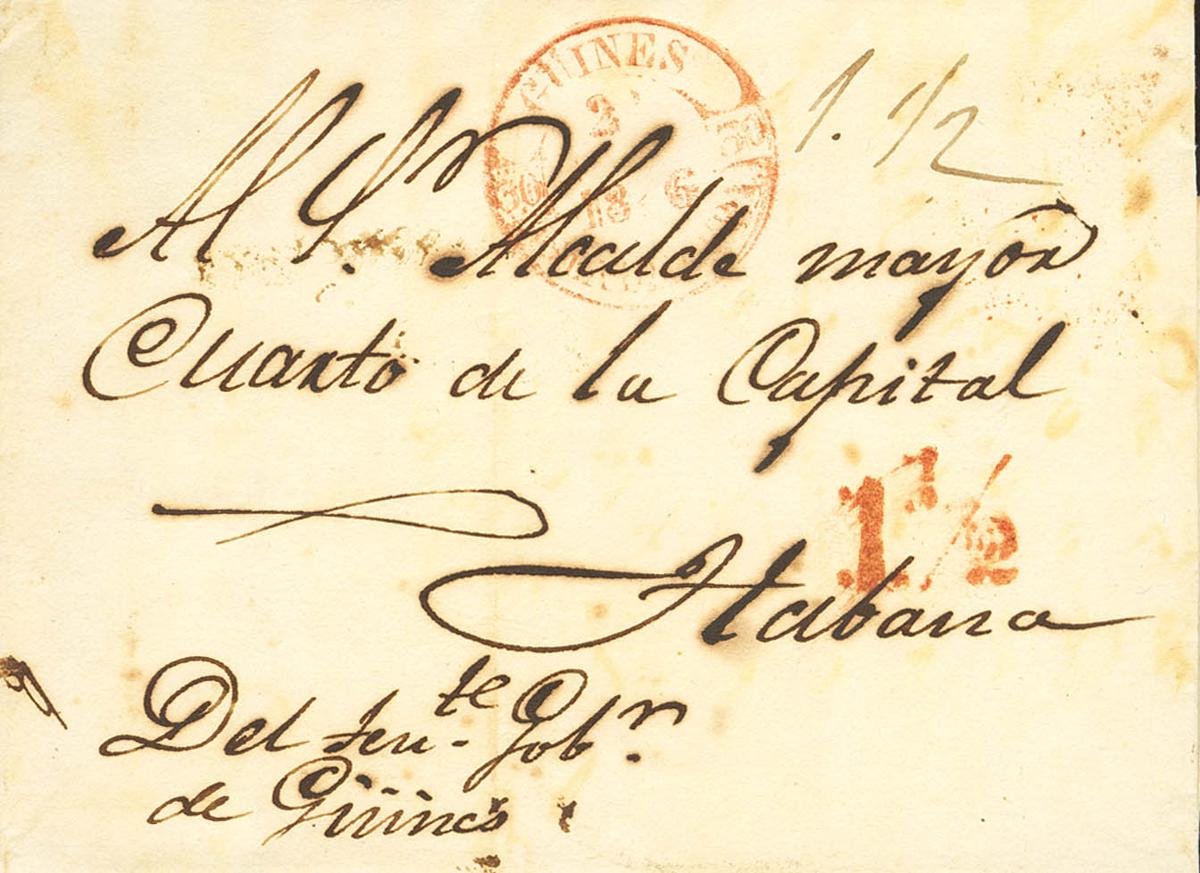 GUINES
2
1. 1/2
Al Sr. Alcalde mayor
Cuarto de la Capital
1 1/2
Habana
Del Tente. Gobr.
de Güines